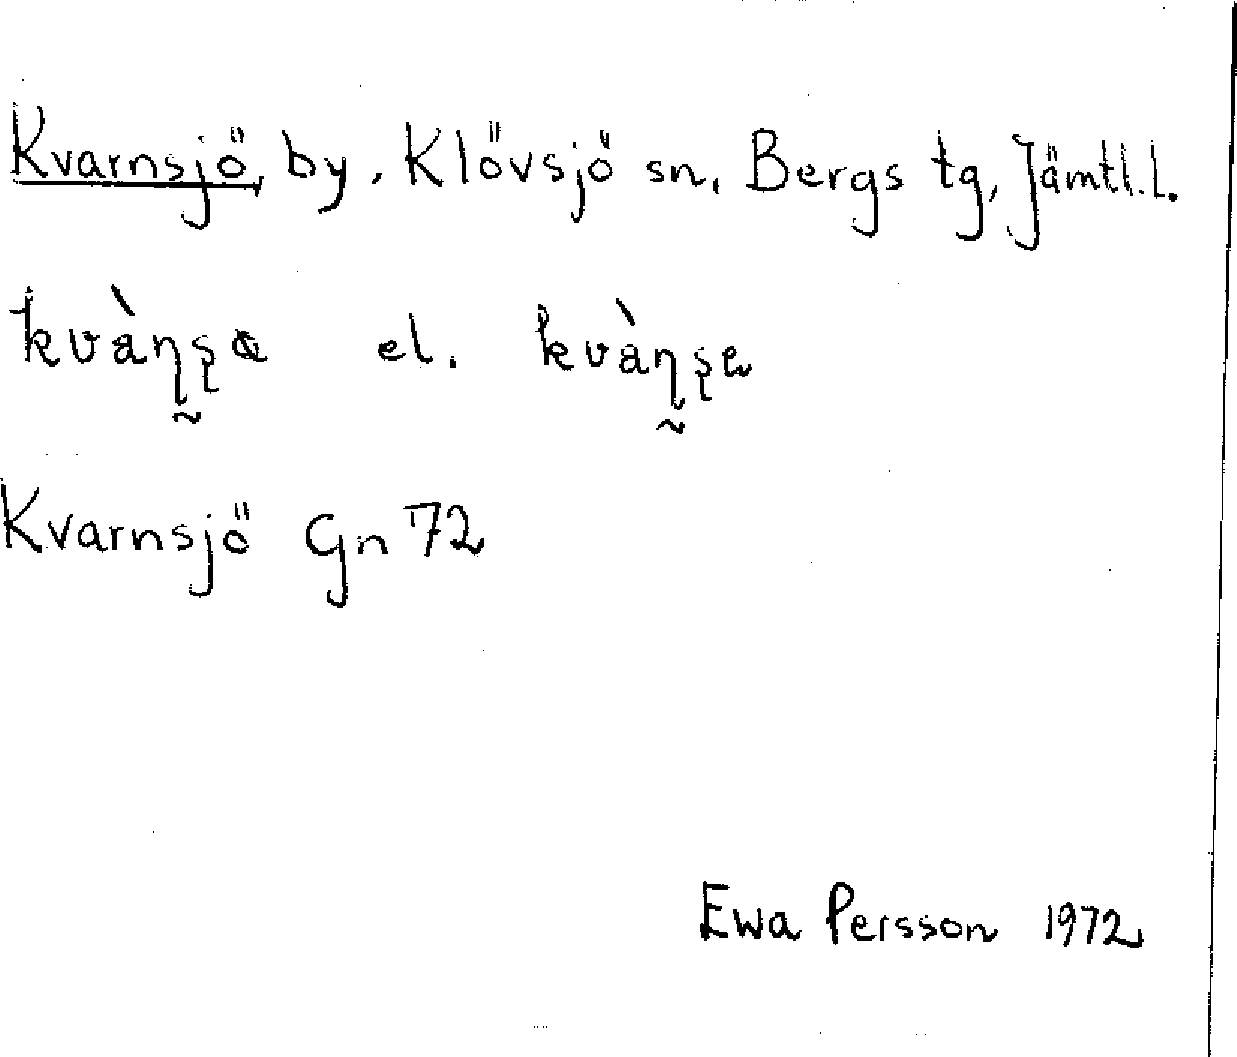 Kvarnsjö, by, Klövsjö sn, Bergs tg, Jämtl.l.
kvàɳ̰ʂɵ el. kvàɳ̰ʂe
Kvarnsjö Gn 72
Ewa Persson 1972